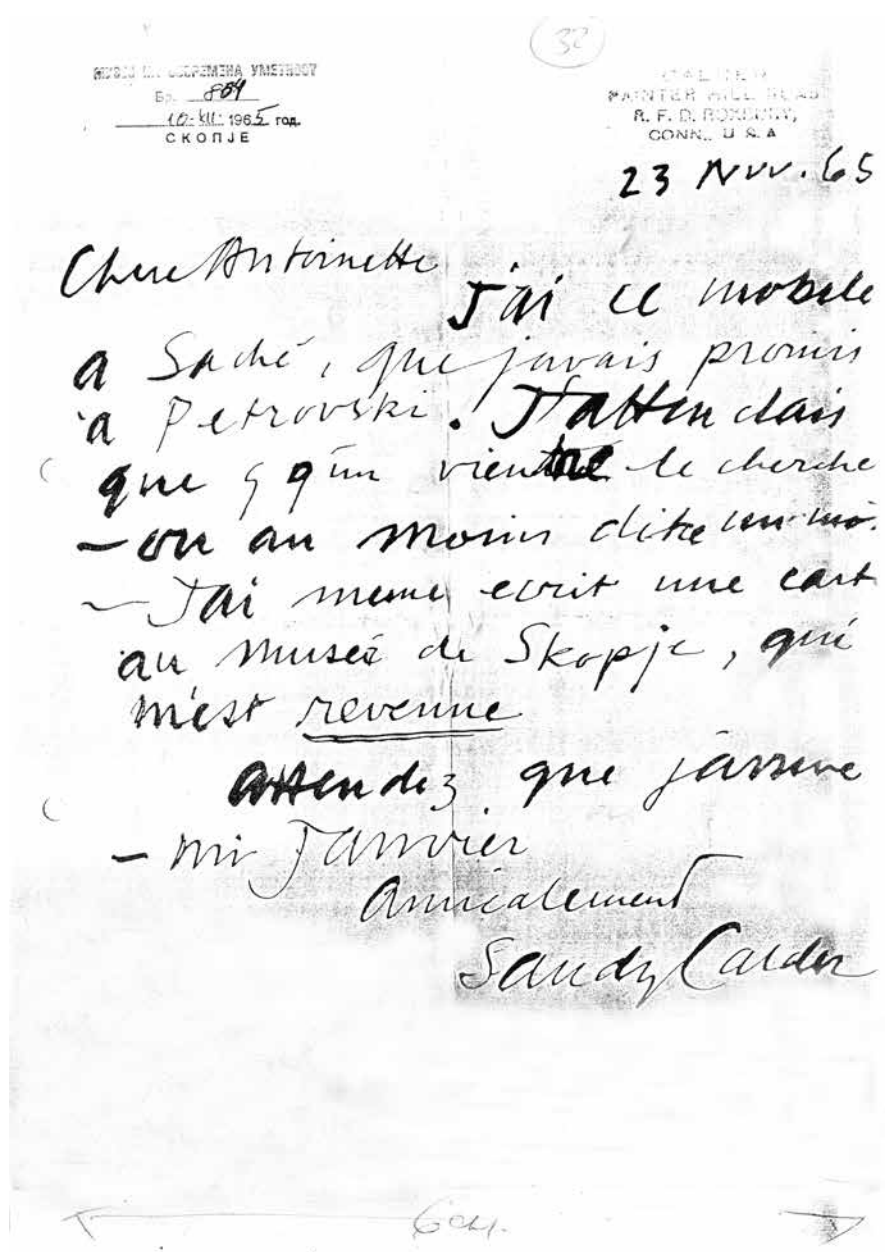 32
МУЗЕЈ НА СОВРЕМЕНА УМЕТНОСТ
Бр. 804
10-XII- 1965 год.
СКОПЈЕ
CALDER
PAINTER HILL ROAD
R. F. D. ROXBURY,
CONN., U S A
23 Nov. 65
Chere Antoinette
J'ai ce mobile
a Saché, que j'avais promis
a Petrovski. J'attendais
que q q'un vienne le cherche
– ou au moins dire un mo.
– J'ai meme ecrit une cart
au Museé de Skopje, qui
m'est revenue
attendez que j'arrive
– mi Janvier
amicalement
Sandy Calder